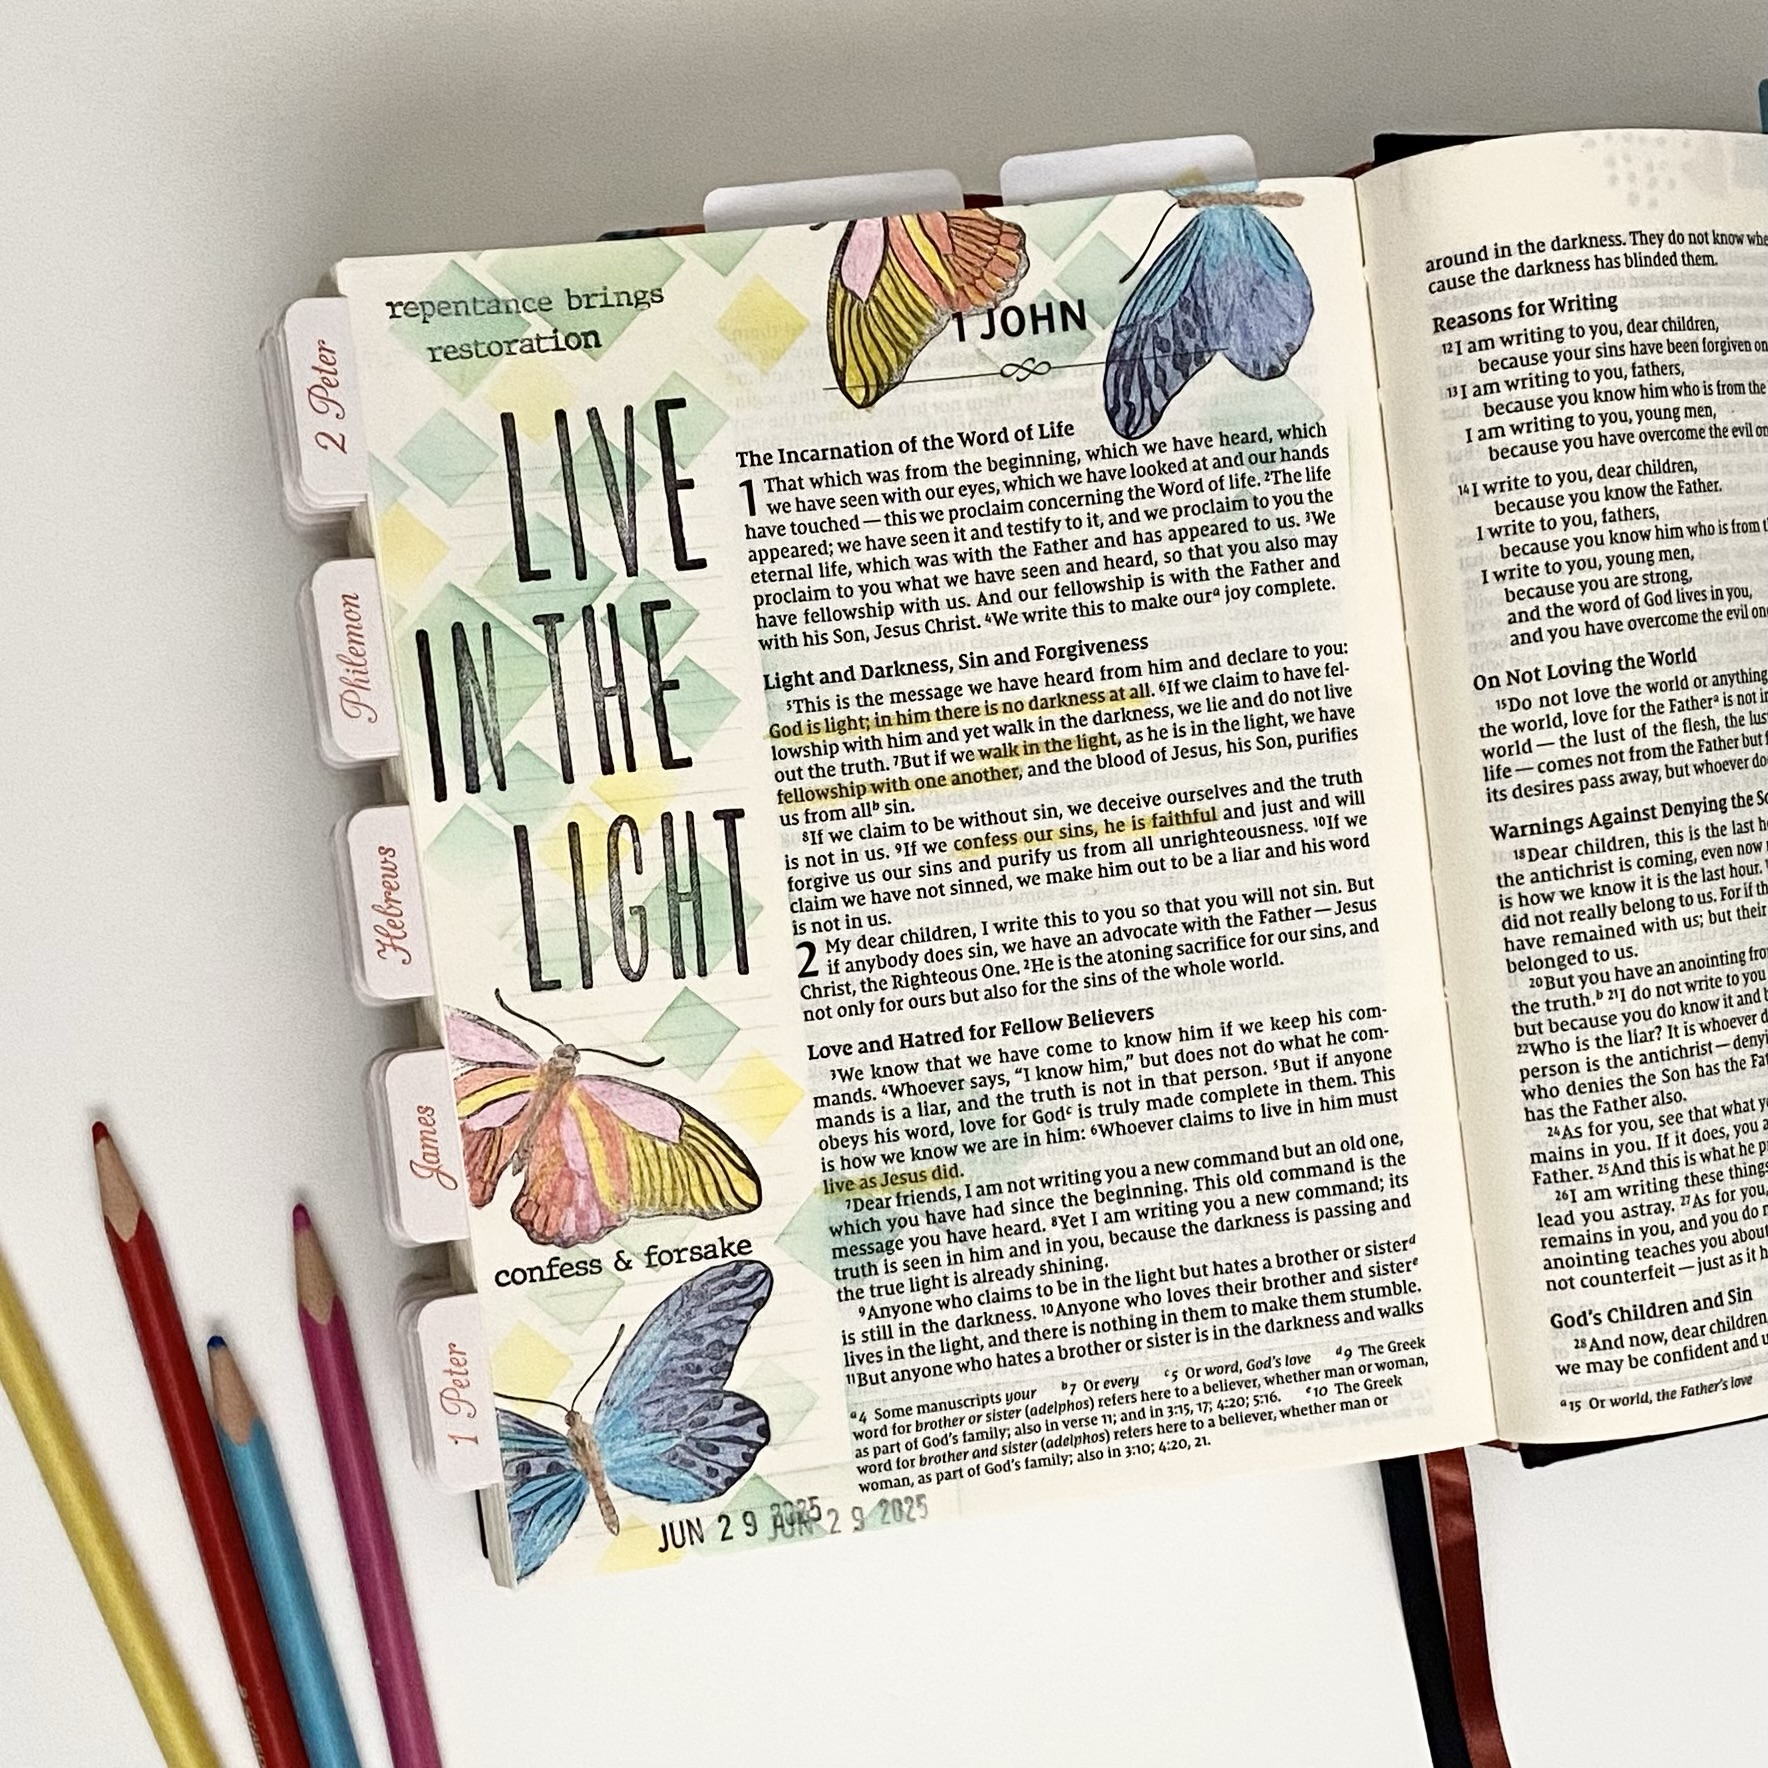 2 Peter
Philemon
Hebrews
James
1 Peter
repentance brings
restoration
LIVE
IN THE
LIGHT
confess & forsake
JUN 29 2025
JUN 29 2025
1 JOHN
The Incarnation of the Word of Life
1 That which was from the beginning, which we have heard, which
we have seen with our eyes, which we have looked at and our hands
have touched — this we proclaim concerning the Word of life. 2The life
appeared; we have seen it and testify to it, and we proclaim to you the
eternal life, which was with the Father and has appeared to us. 3We
proclaim to you what we have seen and heard, so that you also may
have fellowship with us. And our fellowship is with the Father and
with his Son, Jesus Christ. 4We write this to make our a joy complete.
Light and Darkness, Sin and Forgiveness
5This is the message we have heard from him and declare to you:
God is light; in him there is no darkness at all. 6If we claim to have fel-
lowship with him and yet walk in the darkness, we lie and do not live
out the truth. 7But if we walk in the light, as he is in the light, we have
fellowship with one another, and the blood of Jesus, his Son, purifies
us from all b sin.
8If we claim to be without sin, we deceive ourselves and the truth
is not in us. 9If we confess our sins, he is faithful and just and will
forgive us our sins and purify us from all unrighteousness. 10If we
claim we have not sinned, we make him out to be a liar and his word
is not in us.
2 My dear children, I write this to you so that you will not sin. But
if anybody does sin, we have an advocate with the Father — Jesus
Christ, the Righteous One. 2He is the atoning sacrifice for our sins, and
not only for ours but also for the sins of the whole world.
Love and Hatred for Fellow Believers
3We know that we have come to know him if we keep his com-
mands. 4Whoever says, “I know him,” but does not do what he com-
mands is a liar, and the truth is not in that person. 5But if anyone
obeys his word, love for God c is truly made complete in them. This
is how we know we are in him: 6Whoever claims to live in him must
live as Jesus did.
7Dear friends, I am not writing you a new command but an old one,
which you have had since the beginning. This old command is the
message you have heard. 8Yet I am writing you a new command; its
truth is seen in him and in you, because the darkness is passing and
the true light is already shining.
9Anyone who claims to be in the light but hates a brother or sister d
is still in the darkness. 10Anyone who loves their brother and sister e
lives in the light, and there is nothing in them to make them stumble.
11But anyone who hates a brother or sister is in the darkness and walks
a4 Some manuscripts your b7 Or every c5 Or word, God's love d9 The Greek
word for brother or sister (adelphos) refers here to a believer, whether man or woman,
as part of God's family; also in verse 11; and in 3:15, 17; 4:20; 5:16. e10 The Greek
word for brother and sister (adelphos) refers here to a believer, whether man or
woman, as part of God's family; also in 3:10; 4:20, 21.
around in the darkness. They do not know
cause the darkness has blinded them.
Reasons for Writing
12I am writing to you, dear children,
because your sins have been forgiven on
13I am writing to you, fathers,
because you know him who is from the
I am writing to you, young men,
because you have overcome the evil
14I write to you, dear children,
because you know the Father.
I write to you, fathers,
because you know him who is from
I write to you, young men,
because you are strong,
and the word of God lives in you,
and you have overcome the evil
On Not Loving the World
15Do not love the world or anything
the world, love for the Father a is not
world — the lust of the flesh, the
life — comes not from the Father but
its desires pass away, but whoever
Warnings Against Denying the
18Dear children, this is the last
the antichrist is coming, even now
is how we know it is the last hour.
did not really belong to us. For if
have remained with us; but their
belonged to us.
20But you have an anointing
the truth. b 21I do not write to you
but because you do know it and
22Who is the liar? It is whoever
person is the antichrist — 
who denies the Son has the
has the Father also.
24As for you, see that what
mains in you. If it does, you
Father. 25And this is what he
26I am writing these things
lead you astray. 27As for you,
remains in you, and you do
anointing teaches you about
not counterfeit — just as it
God's Children and Sin
28And now, dear children,
we may be confident and
a15 Or world, the Father's love